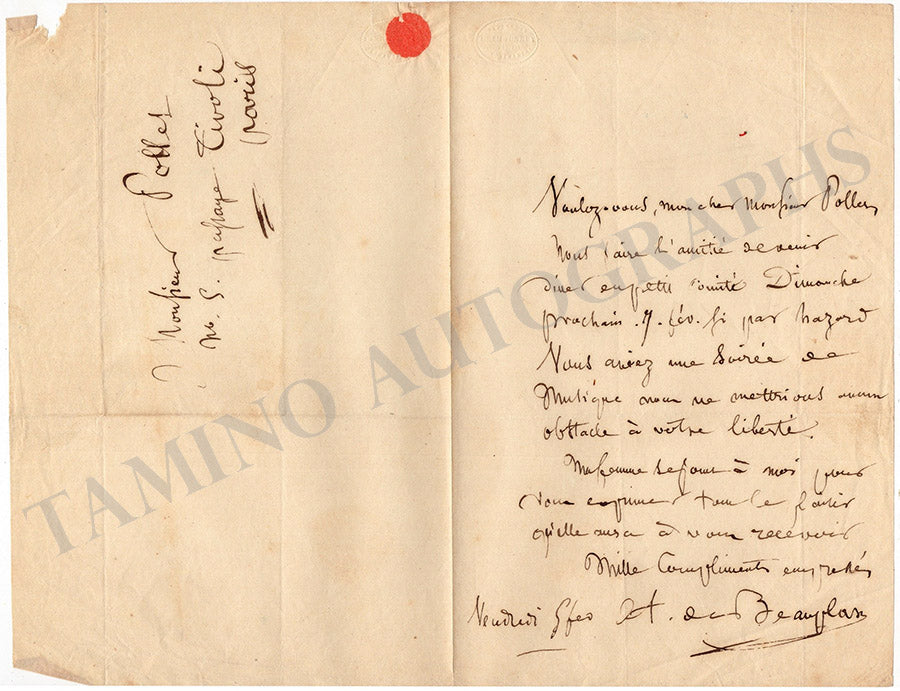 Monsieur Pollet
No. 5. passage Tivoli
paris
Voulez-vous, mon cher Monsieur Pollet,
nous faire l'amitié de venir
diner en petit comité Dimanche
prochain. 7. fév. Si par hazard
Vous aviez une Soirée de
Musique nous ne mettrions aucun
obstacle à votre liberté.
Ma femme se joint à moi pour
vous exprimer tout le plaisir
qu'elle aura à vous recevoir
Mille Compliments empressés
Vendredi 5 fév A. de Beauplan
TAMINO AUTOGRAPHS